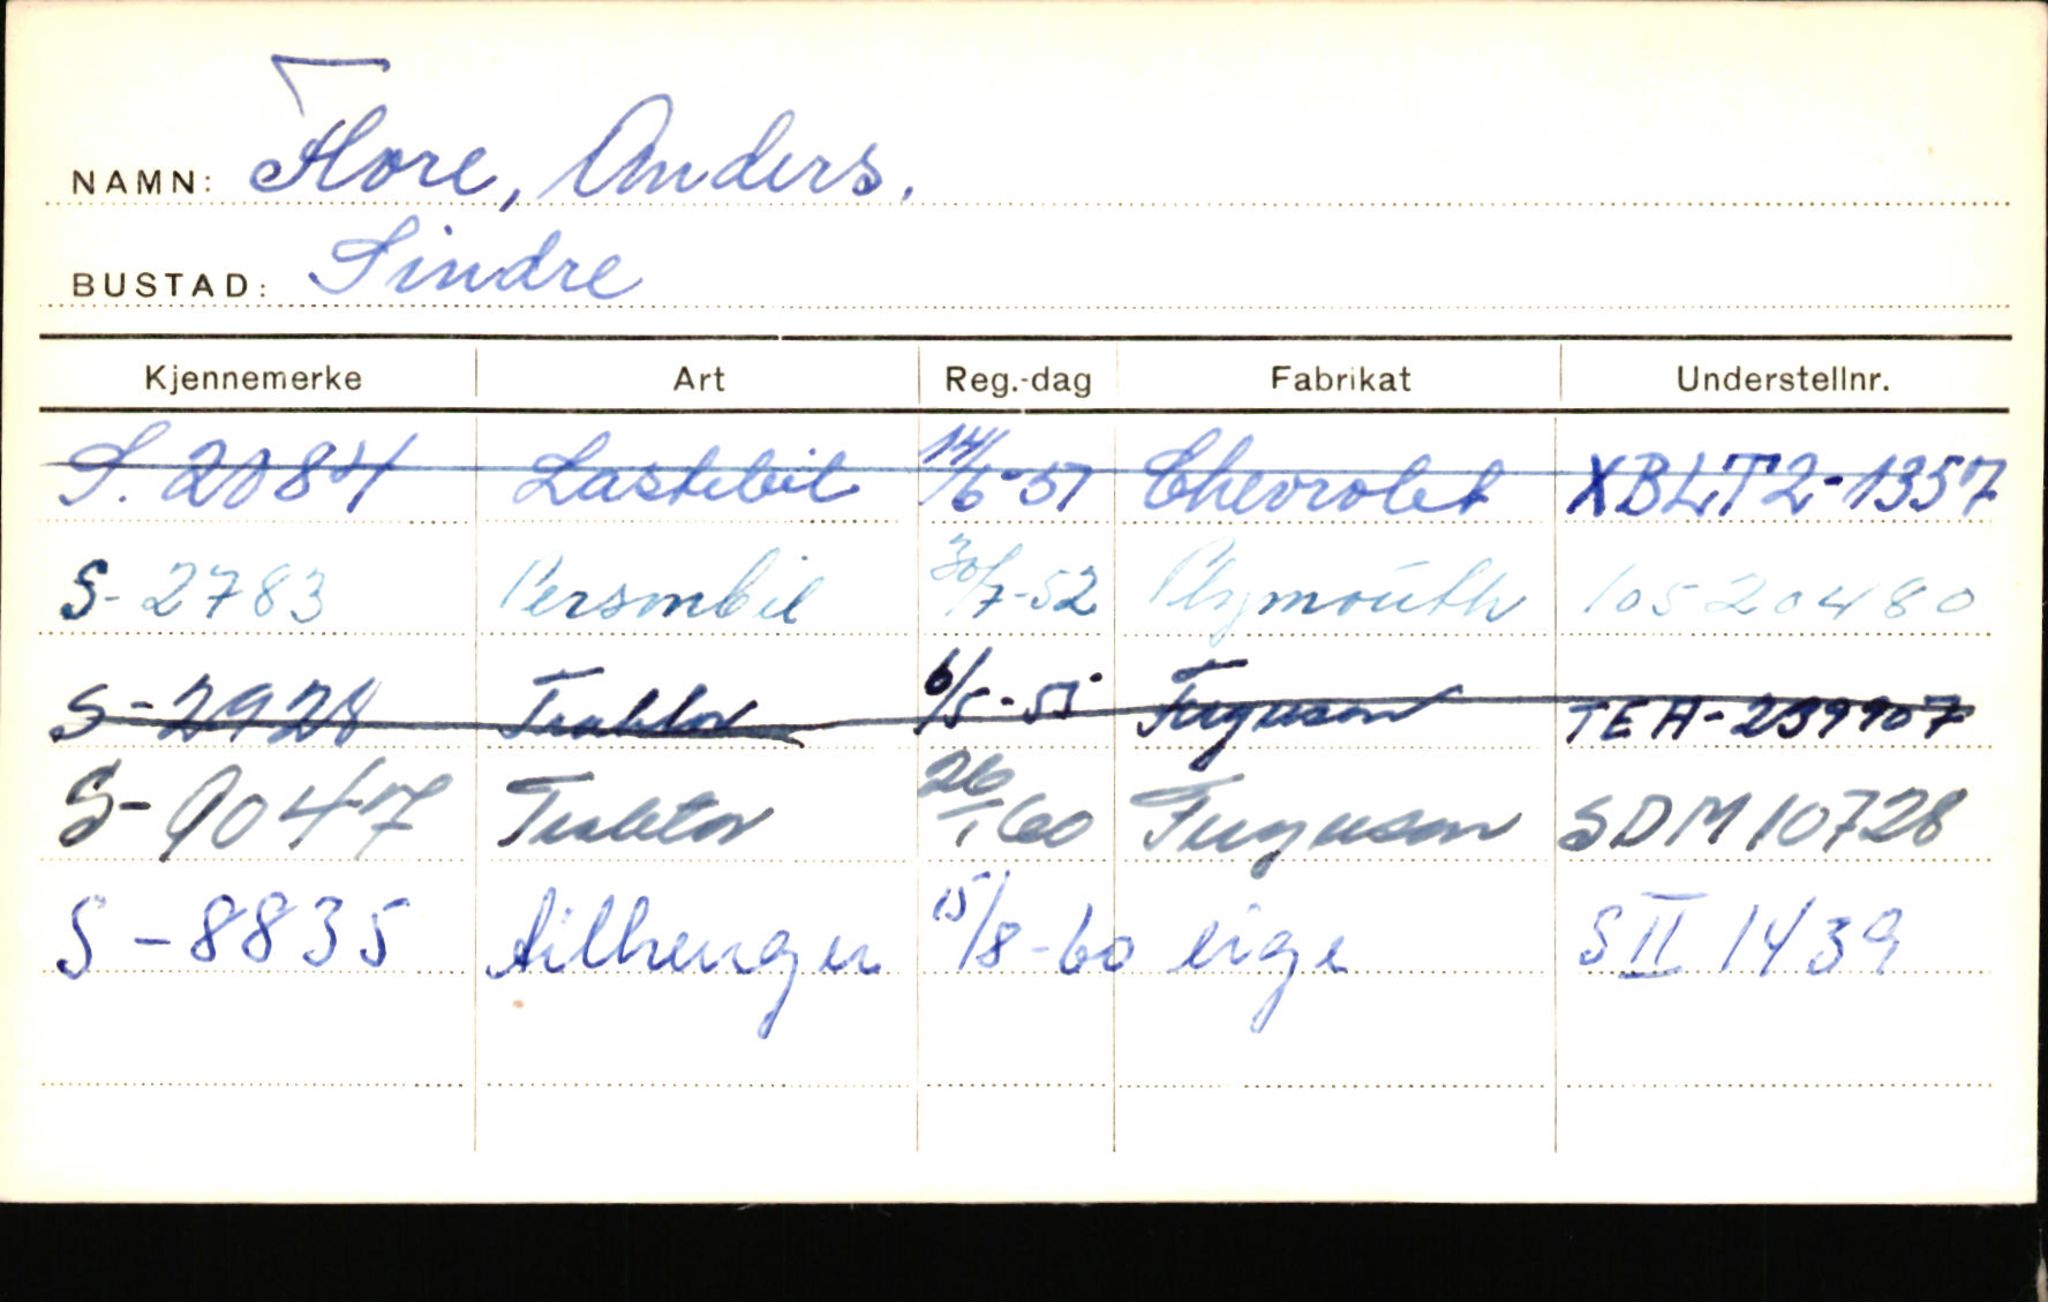 NAMN: Flore, Anders.
BUSTAD: Sindre
Kjennemerke Art Reg.-dag Fabrikat Understellnr.
S. 2084 Lastebil 14/6-51 Chevrolet XBLT2-1357
S-2783 Personbil 30/7-52 Plymouth 10520480
S-2928 Traktor 6/5-55 Ferguson TEA-239907
S-9047 Traktor 26/1 60 Ferguson SDM 10728
S-8835 tilhenger 15/8-60 eige S II 1439